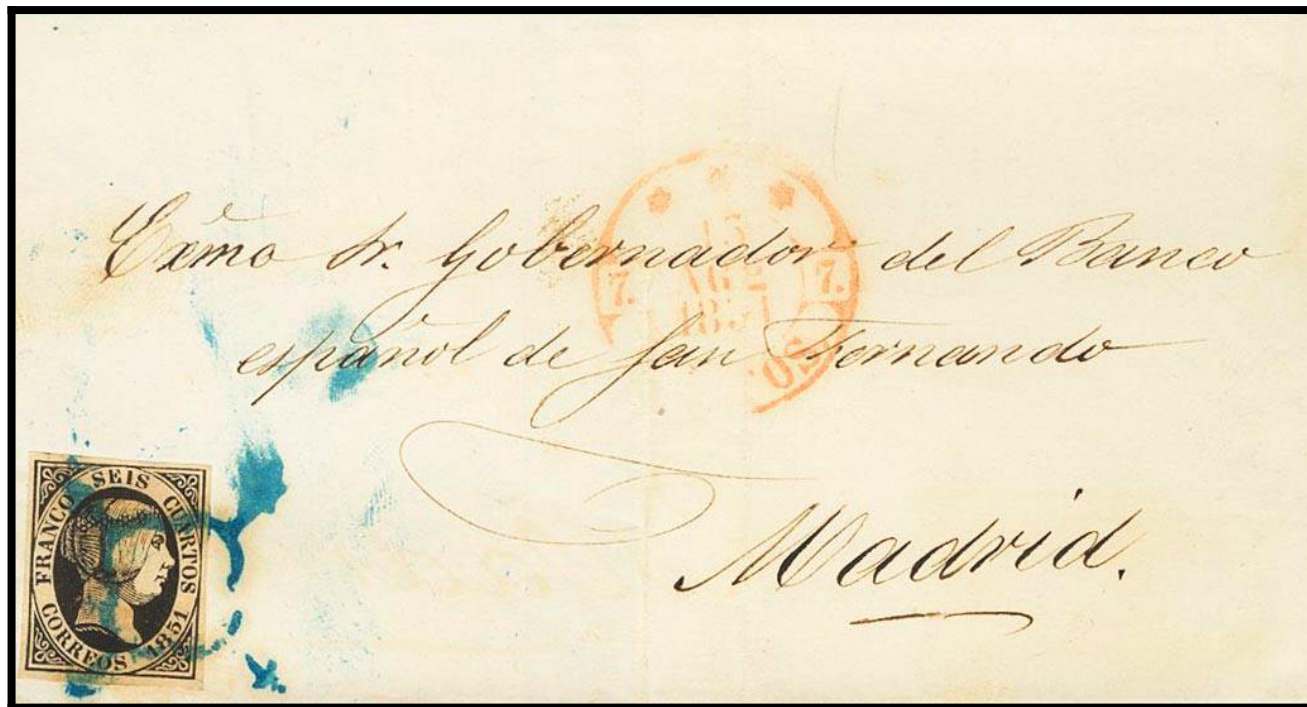 Exmo Sr. Gobernador del Banco
español de San Fernando
Madrid.
15
AG
1851
7. 7.
OS
FRANCO SEIS CUARTOS
CORREOS 1851